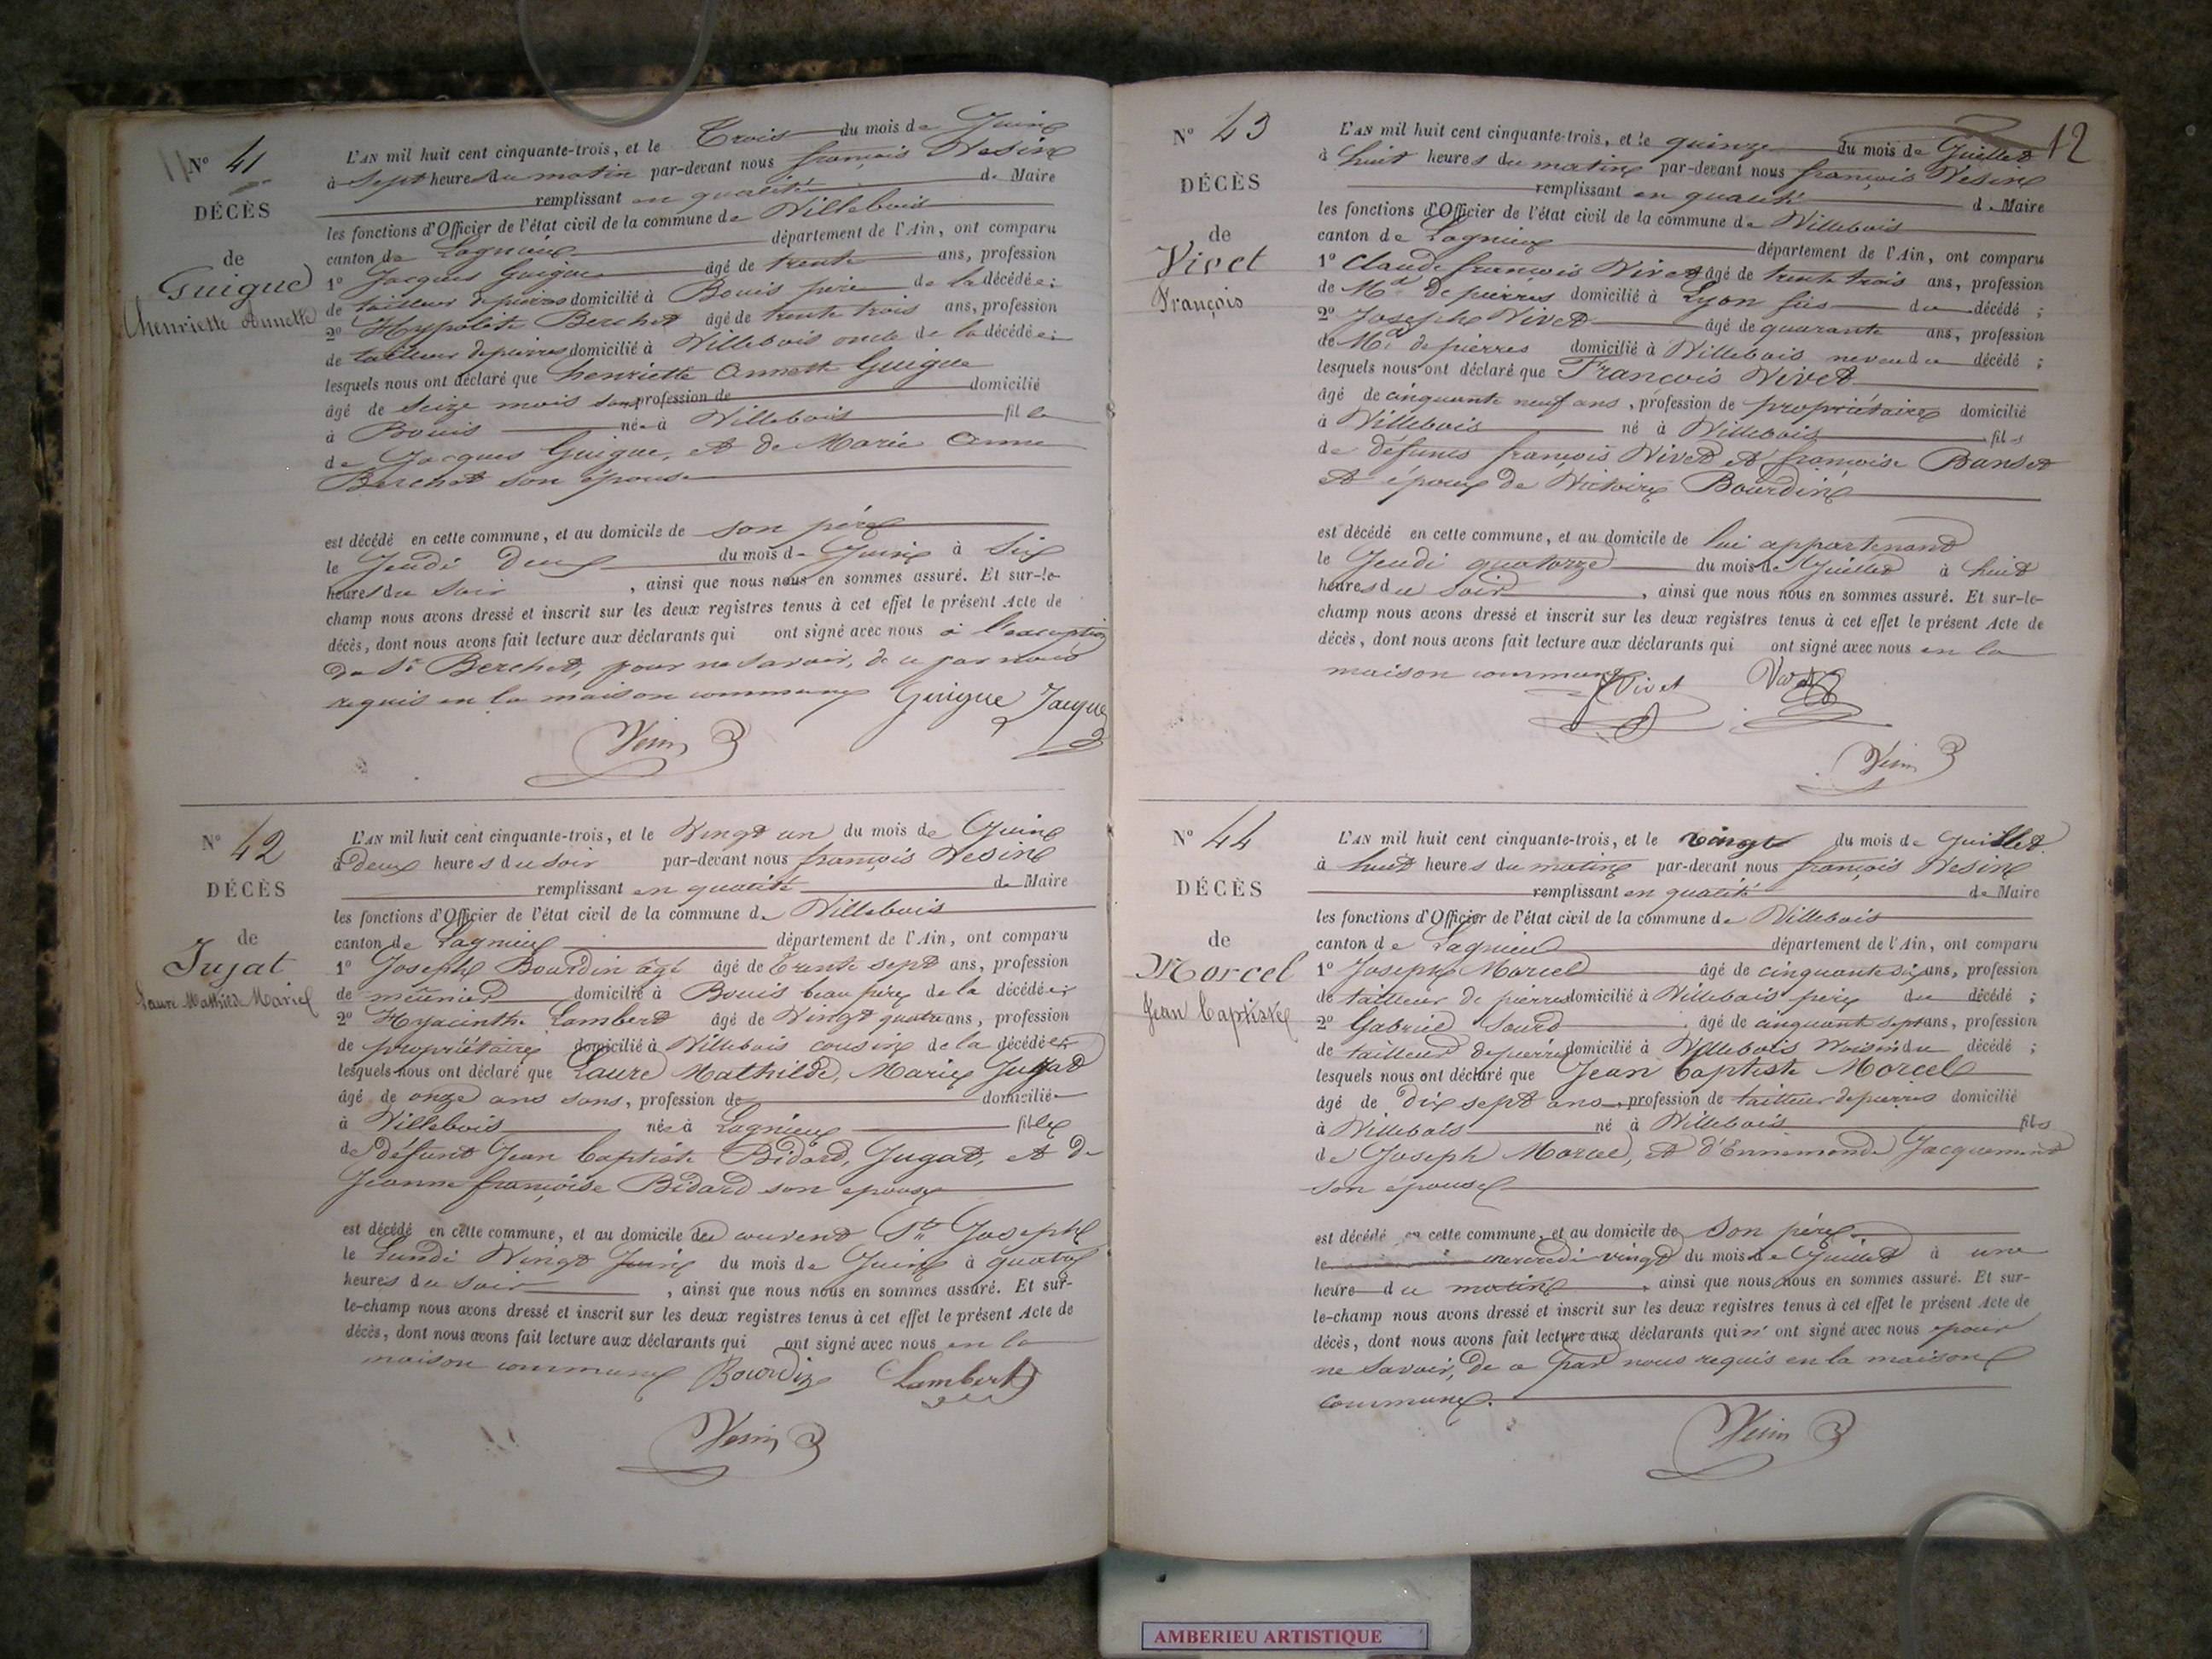 N° 41
DÉCÈS
de
Guigue
henriette Annette
L'AN mil huit cent cinquante-trois, et le Trois du mois de Juin
à Sept heures du matin par-devant nous françois Vesin
remplissant en qualité de Maire
les fonctions d'Officier de l'état civil de la commune de Villebois
canton de Lagnieu département de l'Ain, ont comparu
1° Jacques Guigue âgé de trente ans, profession
de tailleur de pierres domicilié à Bouis père de la décédée;
2° Hypolite Berchet âgé de trente trois ans, profession
de tailleur de pierres domicilié à Villebois oncle de la décédée;
lesquels nous ont déclaré que henriette Annette Guigue
âgé de Seize mois sans profession de domicilié
à Bouis née à Villebois fille
de Jacques Guigue, et de Marie Anne
Berchet son épouse
est décédé en cette commune, et au domicile de son père
le Jeudi Deux du mois de Juin à Six
heures du Soir, ainsi que nous nous en sommes assuré. Et sur-le-
champ nous avons dressé et inscrit sur les deux registres tenus à cet effet le présent Acte de
décès, dont nous avons fait lecture aux déclarants qui ont signé avec nous à l'exception
du Sr Berchet, pour ne savoir, de ce par nous
requis en la maison commune Guigue Jacque
Vesin
N° 42
DÉCÈS
de
Jujat
Laure Mathilde Marie
L'AN mil huit cent cinquante-trois, et le Vingt un du mois de Juin
à Deux heures du soir par-devant nous françois Vesin
remplissant en qualité de Maire
les fonctions d'Officier de l'état civil de la commune de Villebois
canton de Lagnieu département de l'Ain, ont comparu
1° Joseph Bourdin âgé âgé de trente sept ans, profession
de meûnier domicilié à Bouis beau père de la décédée;
2° Hyacinthe Lambert âgé de Vingt quatre ans, profession
de propriétaire domicilié à Villebois cousin de la décédée;
lesquels nous ont déclaré que Laure Mathilde, Marie Jujat
âgé de onze ans sans, profession de domiciliée
à Villebois née à Lagnieu fille
de défunt Jean Baptiste Bidard, Jugat, et de
Jeanne françoise Bidard son épouse
est décédé en cette commune, et au domicile du couvent St Joseph
le Lundi Vingt Juin du mois de Juin à quatre
heures du soir, ainsi que nous nous en sommes assuré. Et sur-
le-champ nous avons dressé et inscrit sur les deux registres tenus à cet effet le présent Acte de
décès, dont nous avons fait lecture aux déclarants qui ont signé avec nous en la
maison commune Bourdin Lambert
Vesin
12
N° 43
DÉCÈS
de
Vivet
François
L'AN mil huit cent cinquante-trois, et le quinze du mois de Juillet
à huit heures du matin par-devant nous françois Vesin
remplissant en qualité de Maire
les fonctions d'Officier de l'état civil de la commune de Villebois
canton de Lagnieu département de l'Ain, ont comparu
1° Claude françois Vivet âgé de trente trois ans, profession
de Md de pierres domicilié à Lyon fils du décédé;
2° Joseph Vivet âgé de quarante ans, profession
de Md de pierres domicilié à Villebois neveu du décédé;
lesquels nous ont déclaré que François Vivet
âgé de cinquante neuf ans, profession de propriétaire domicilié
à Villebois né à Villebois fils
de défunts françois Vivet et françoise Banset
et époux de Victoire Bourdin
est décédé en cette commune, et au domicile de lui appartenant
le Jeudi quatorze du mois de Juillet à huit
heures du soir, ainsi que nous nous en sommes assuré. Et sur-le-
champ nous avons dressé et inscrit sur les deux registres tenus à cet effet le présent Acte de
décès, dont nous avons fait lecture aux déclarants qui ont signé avec nous en la
maison commune Vivet Vivet
Vesin
N° 44
DÉCÈS
de
Morcel
Jean Baptiste
L'AN mil huit cent cinquante-trois, et le vingt du mois de Juillet
à huit heures du matin par-devant nous françois Vesin
remplissant en qualité de Maire
les fonctions d'Officier de l'état civil de la commune de Villebois
canton de Lagnieu département de l'Ain, ont comparu
1° Joseph Morcel âgé de cinquante six ans, profession
de tailleur de pierres domicilié à Villebois père du décédé;
2° Gabriel Sourd âgé de cinquante sept ans, profession
de tailleur de pierres domicilié à Villebois Voisin du décédé;
lesquels nous ont déclaré que Jean Baptiste Morcel
âgé de Dix sept ans profession de tailleur de pierres domicilié
à Villebois né à Villebois fils
de Joseph Morcel, et d'Ennimonde Jacquemet
son épouse
est décédé en cette commune, et au domicile de son père
le mercredi vingt du mois de Juillet à une
heure du matin, ainsi que nous nous en sommes assuré. Et sur-
le-champ nous avons dressé et inscrit sur les deux registres tenus à cet effet le présent Acte de
décès, dont nous avons fait lecture aux déclarants qui n'ont signé avec nous pour
ne savoir, de ce par nous requis en la maison
commune.
Vesin
AMBERIEU ARTISTIQUE